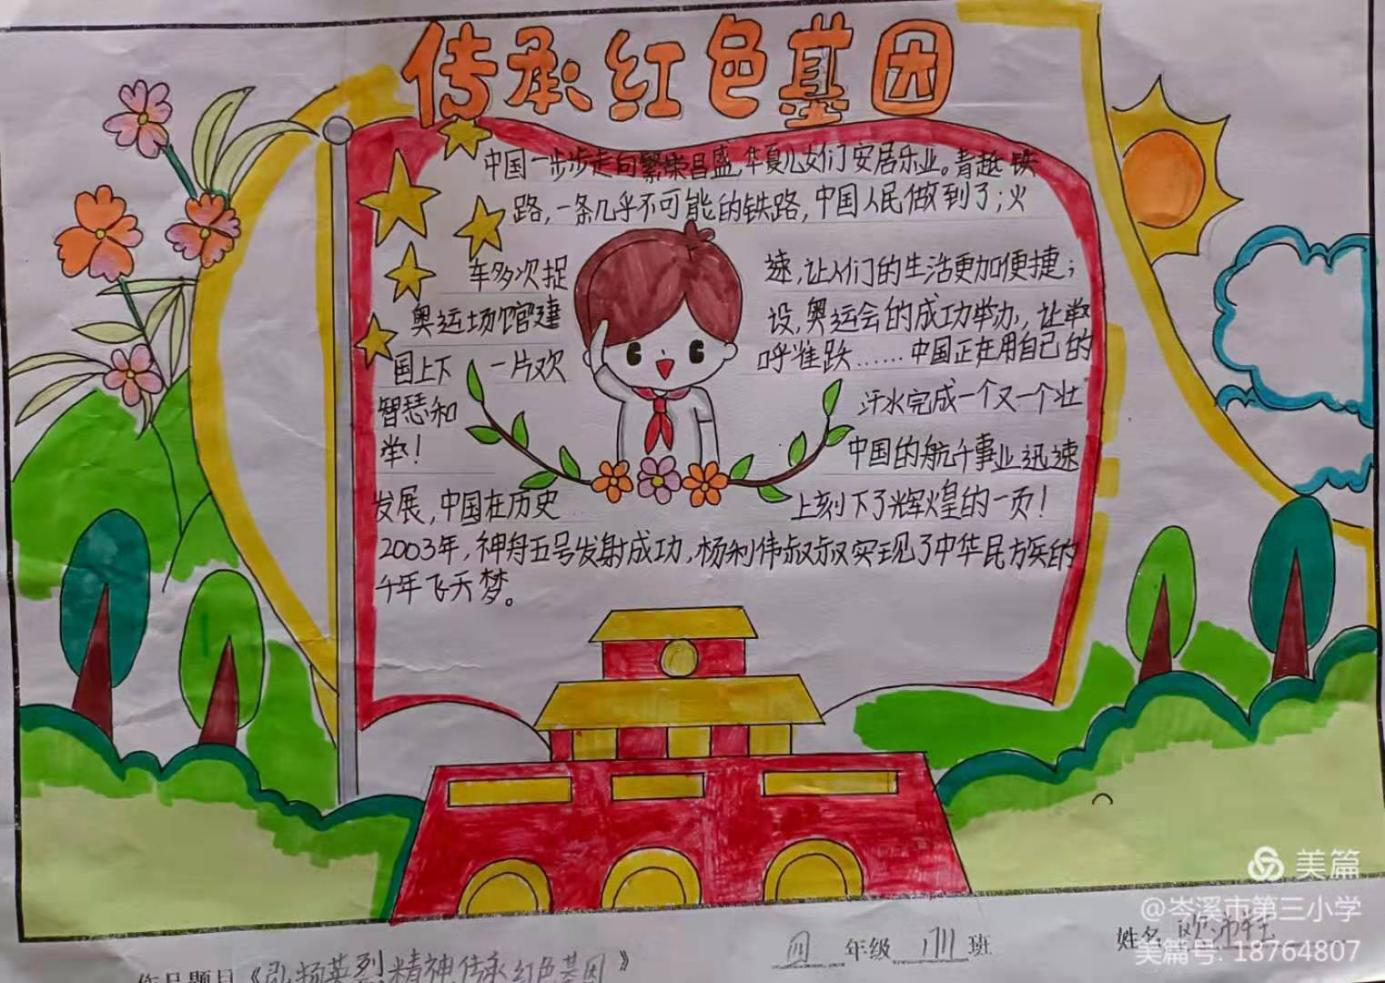 传承红色基因
中国一步步走向繁荣昌盛,华夏儿女们安居乐业。青越铁
路,一条几乎不可能的铁路,中国人民做到了;火
车多次捉 速,让人们的生活更加便捷;
奥运场馆建 设,奥运会的成功举办,让举
国上下 一片欢 呼雀跃……中国正在用自己的
智慧和 汗水完成一个又一个壮
举! 中国的航千事业迅速
发展,中国在历史 上刻下了辉煌的一页!
2003年,神舟五号发射成功,杨利伟叔叔实现了中华民族的
千年飞天梦。
美篇
@岑溪市第三小学
四 年级 班 姓名
美篇号: 18764807
作品题目《弘扬英烈精神传承红色基因》